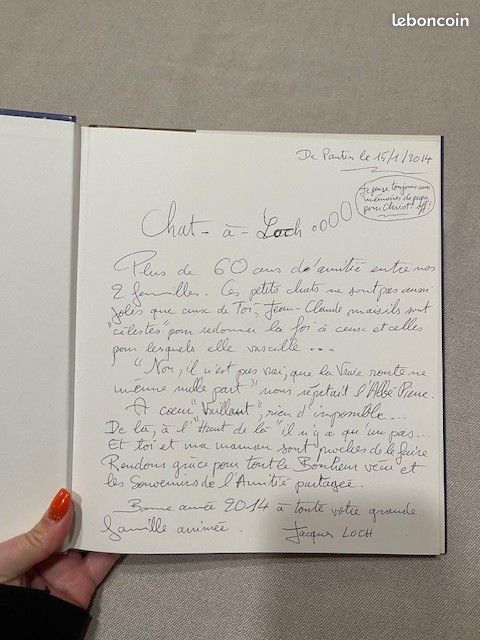 leboncoin
De Pantin le 15/1/2014
Je pense toujours aux
mémoires de papa
pour Christ
Chat-à-Loch
Plus de 60 ans d'amitié entre nos
2 familles. Ces petits chats ne sont pas aussi
jolis que ceux de Toi, Jean-Claude mais ils sont
"célestes" pour redonner la foi à ceux et celles
pour lesquels elle vacille ...
"Non, il n'est pas vrai, que la Vraie route ne
mène nulle part" nous répétait l'Abbé Pierre.
A cœur "Vaillant", rien d'impossible...
De là, à l'"Haut de là" il n'y a qu'un pas...
Et toi et ma maman sont proches de le faire
Rendons grâce pour tout le Bonheur vécu et
les Souvenirs de l'Amitié partagée.
Bonne année 2014 à toute votre grande
famille animée.
Jacques LOCH